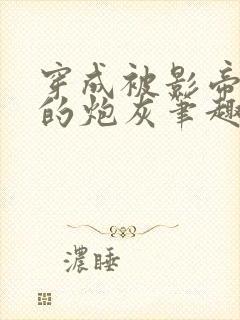 穿成被影帝
的炮灰笔趣
濃睡